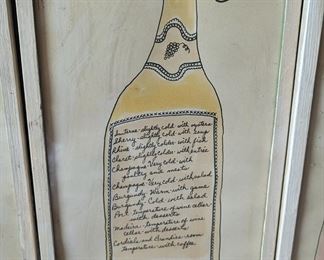 Sauterne - slightly cold - with oysters
Sherry - slightly cold - with soup
Rhine - slightly colder - with fish
Claret - slightly colder - with entree
Champagne - Very cold - with
poultry and meats
Champagne - Very cold - with salad
Burgundy - Warm - with game
Burgundy - Cold - with salad
Port - temperature of wine cellar -
with desserts
Madeira - temperature of wine
cellar - with desserts
Cordials and Brandies - room
temperature - with coffee